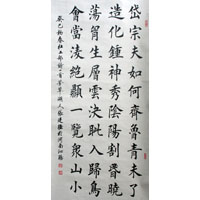 岱宗夫如何齊魯青未了
造化鍾神秀陰陽割昏曉
蕩胷生層雲決眦入歸鳥
會當淩絕頂一覽衆山小
癸巳 春杜工部詩一首